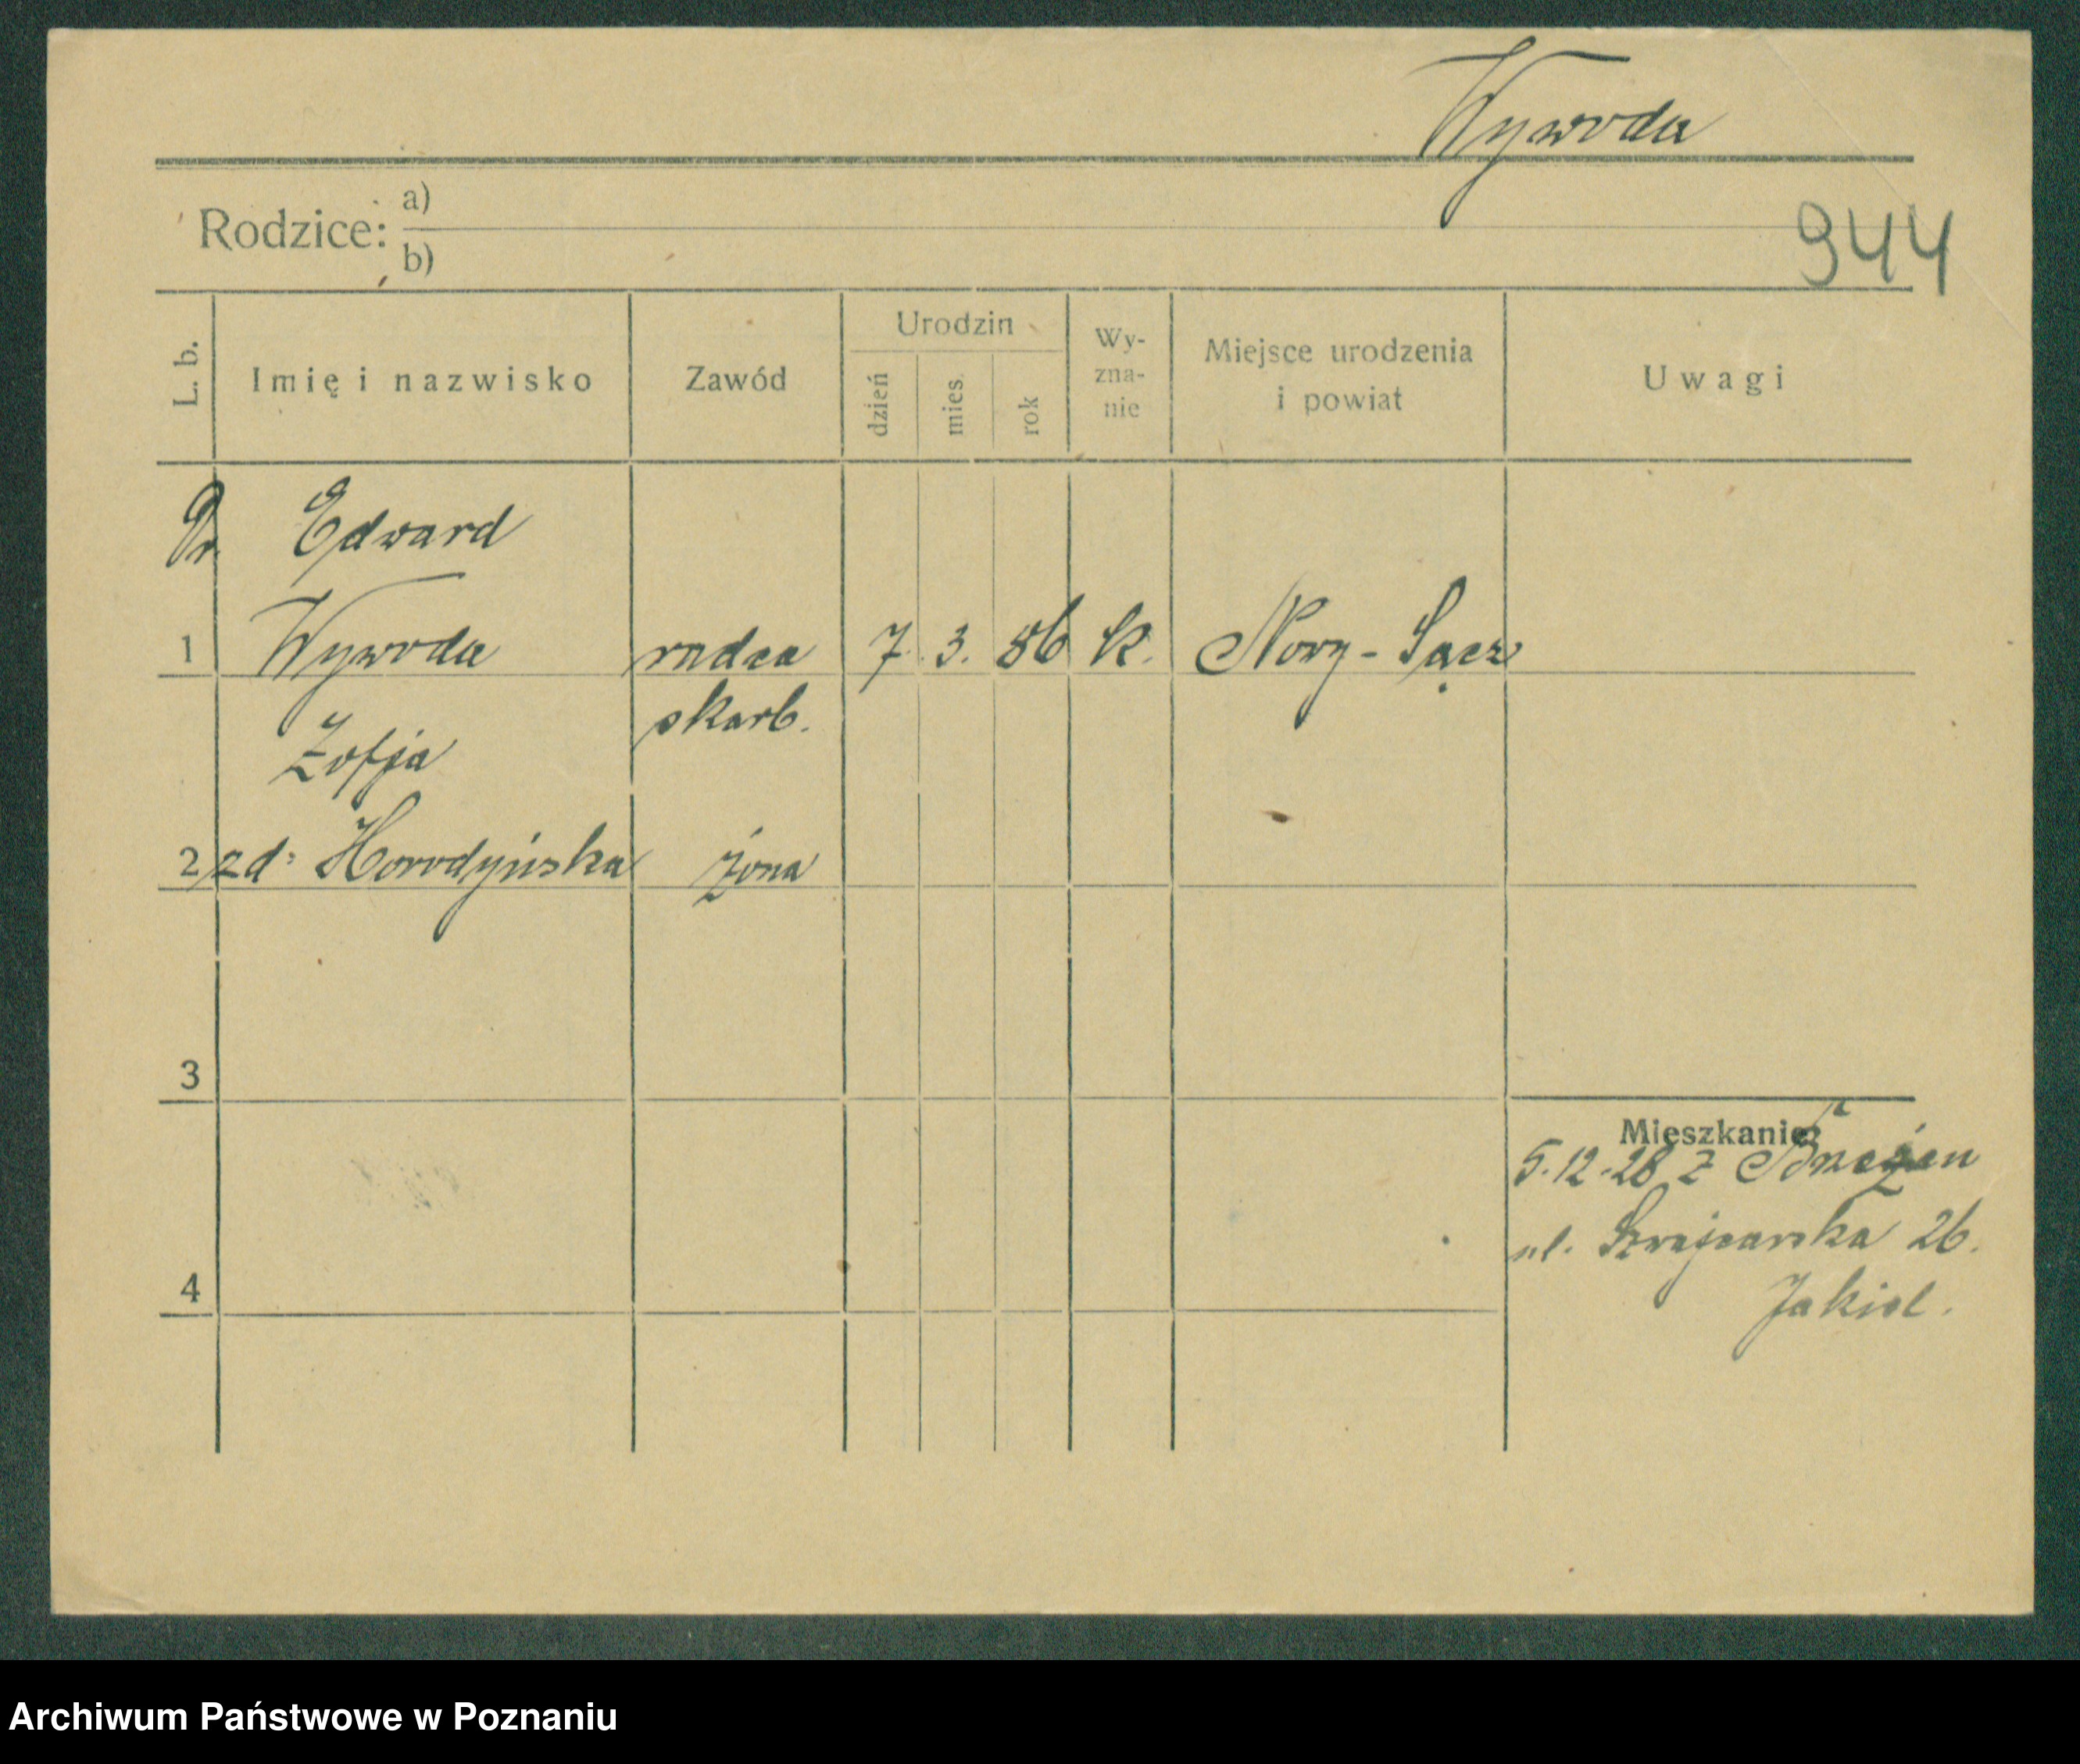 Wywoda
Rodzice: a)
b)
944
L. b. Imię i nazwisko Zawód Urodzin dzień mies. rok Wy-zna-nie Miejsce urodzenia i powiat Uwagi
Dr Edward
1 Wywoda radca 7. 3. 86 k. Nowy-Sącz
skarb.
Zofja
2 zd: Horodyńska żona
3
Mieszkanie:
5.12.28 z Brzeżan
ul. Szwajcarska 26.
4
Jakiel.
Archiwum Państwowe w Poznaniu